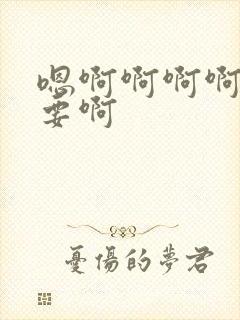 嗯啊啊啊啊
要啊
憂傷的夢君